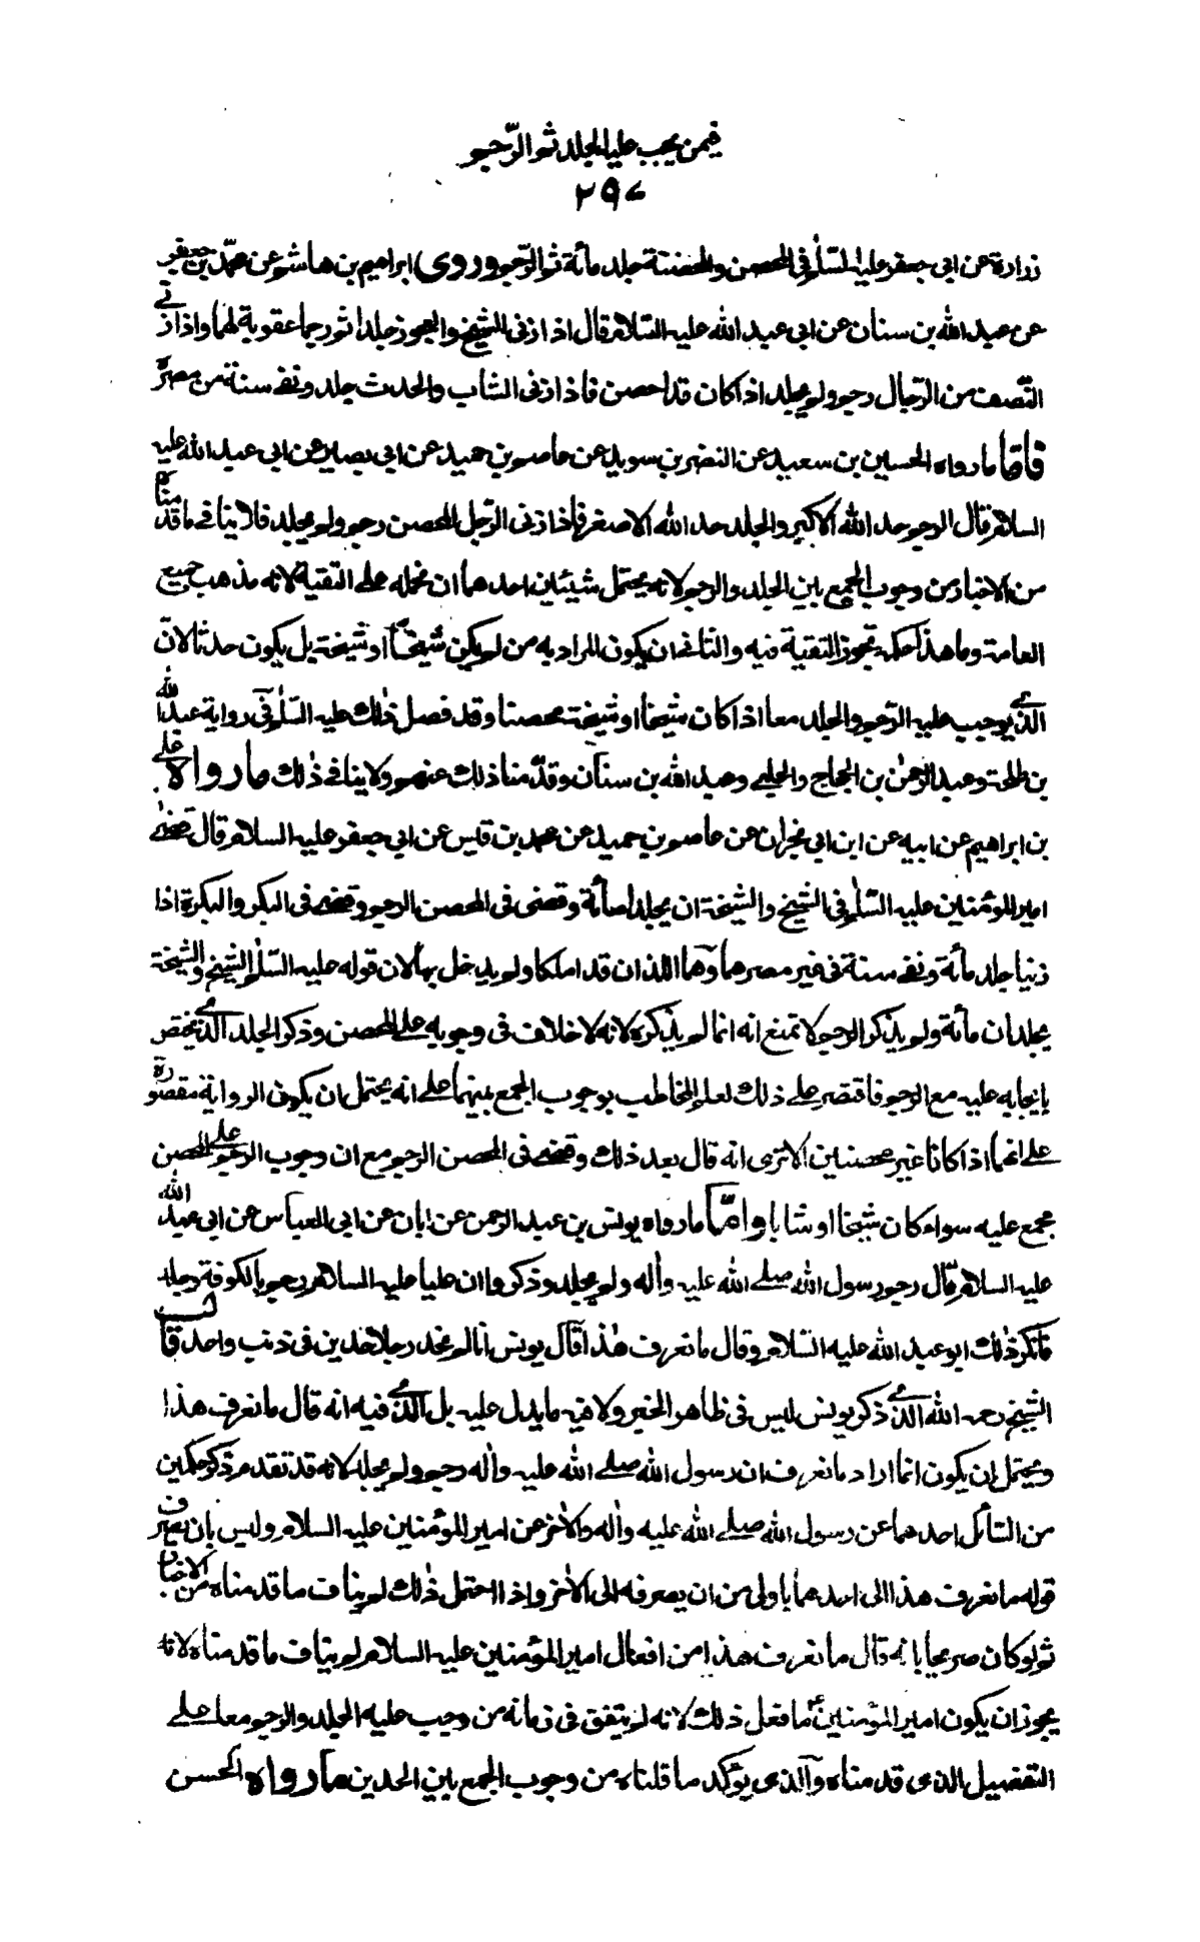 فيمن يجب عليه الجلد ثم الرّجم
٢٩٧
زرارة عن ابي جعفر عليه السّلام في المحصن والمحصنة جلد مائة ثم الرّجم وروى ابراهيم بن هاشم عن محمّد بن جعفر
عن عبد الله بن سنان عن ابي عبد الله عليه السّلام قال اذا زنى الشيخ والعجوز جلدا ثم رجما عقوبة لهما واذا زنى
النّصف من الرّجال رجم ولم يجلد اذا كان قد احصن فاذا زنى الشاب والحدث جلد ونفى سنة من مصره
فامّا ما رواه الحسين بن سعيد عن النضر بن سويد عن عاصم بن حميد عن ابي بصير عن ابي عبد الله عليه
السلام قال الرجم حد الله الاكبر والجلد حد الله الاصغر فاذا زنى الرّجل المحصن رجم ولم يجلد فلا ينافي ما قدمناه
من الاخبار من وجوب الجمع بين الجلد والرجم لانه يحتمل شيئين احدهما ان نحمله على التقية لانه مذهب جميع
العامة وما هذا حكمه تجوز التقية فيه والثاني ان يكون المراد به من لم يكن شيخاً او شيخة بل يكون حدثا لانّ
الذي يوجب عليه الرّجم والجلد معا اذا كان شيخا او شيخة محصنا وقد فصل ذلك عليه السّلام في رواية عبد الله
بن طلحة وعبد الرحمن بن الحجاج والحلبي وعبد الله بن سنان وقدّمنا ذلك عنهم ولا ينافي ذلك ما رواه علي
بن ابراهيم عن ابيه عن ابن ابي نجران عن عاصم بن حميد عن محمد بن قيس عن ابي جعفر عليه السلام قال قضى
امير المؤمنين عليه السّلام في الشيخ والشيخة ان يجلدا مائة وقضى في المحصن الرجم وقضى في البكر والبكرة اذا
زنيا جلد مائة ونفى سنة في غير مصرهما وهما اللذان قد املكا ولم يدخل بها لان قوله عليه السّلام الشيخ والشيخة
يجلدان مائة ولم يذكر الرجم لا تمنع انه انما لم يذكره لانه لا خلاف في وجوبه على المحصن وذكر الجلد الذي يختص
بايجابه عليه مع الرجم فاقتصر على ذلك لعلم المخاطب بوجوب الجمع بينهما على انه يحتمل ان يكون الرواية مقصورة
على انهما اذا كانا غير محصنين الا ترى انه قال بعد ذلك وقضى في المحصن الرجم مع ان وجوب الرجم على المحصن
مجمع عليه سواء كان شيخا او شابا وامّا ما رواه يونس بن عبد الرحمن عن ابان عن ابي العباس عن ابي عبد الله
عليه السلام قال رجم رسول الله صلى الله عليه واله ولم يجلد وذكروا ان عليا عليه السلام رجم بالكوفة وجلد
فانكر ذلك ابو عبد الله عليه السّلام وقال ما نعرف هذا قال يونس انا لم نحد رجلا حدين في ذنب واحد قال
الشيخ رحمه الله الذي ذكر يونس ليس في ظاهر الخبر ولا فيه ما يدل عليه بل الذي فيه انه قال ما نعرف هذا
ويحتمل ان يكون انما اراد ما نعرف ان رسول الله صلى الله عليه واله رجم ولم يجلد لانه قد تقدم ذكر حكمين
من السّائل احدهما عن رسول الله صلى الله عليه واله والآخر عن امير المؤمنين عليه السلام وليس بان يصرف
قوله ما نعرف هذا الى احدهما باولى من ان يصرفه الى الآخر واذا احتمل ذلك لم يناف ما قدمناه من الاخبار
ثم لو كان صريحا بانه قال ما نعرف هذا من افعال امير المؤمنين عليه السلام لم يناف ما قدمناه لانه
يجوز ان يكون امير المؤمنين ع ما فعل ذلك لانه لم يتفق في زمانه من وجب عليه الجلد والرجم معا على
التفصيل الذي قدمناه والذي يؤكد ما قلناه من وجوب الجمع بين الحدين ما رواه الحسن